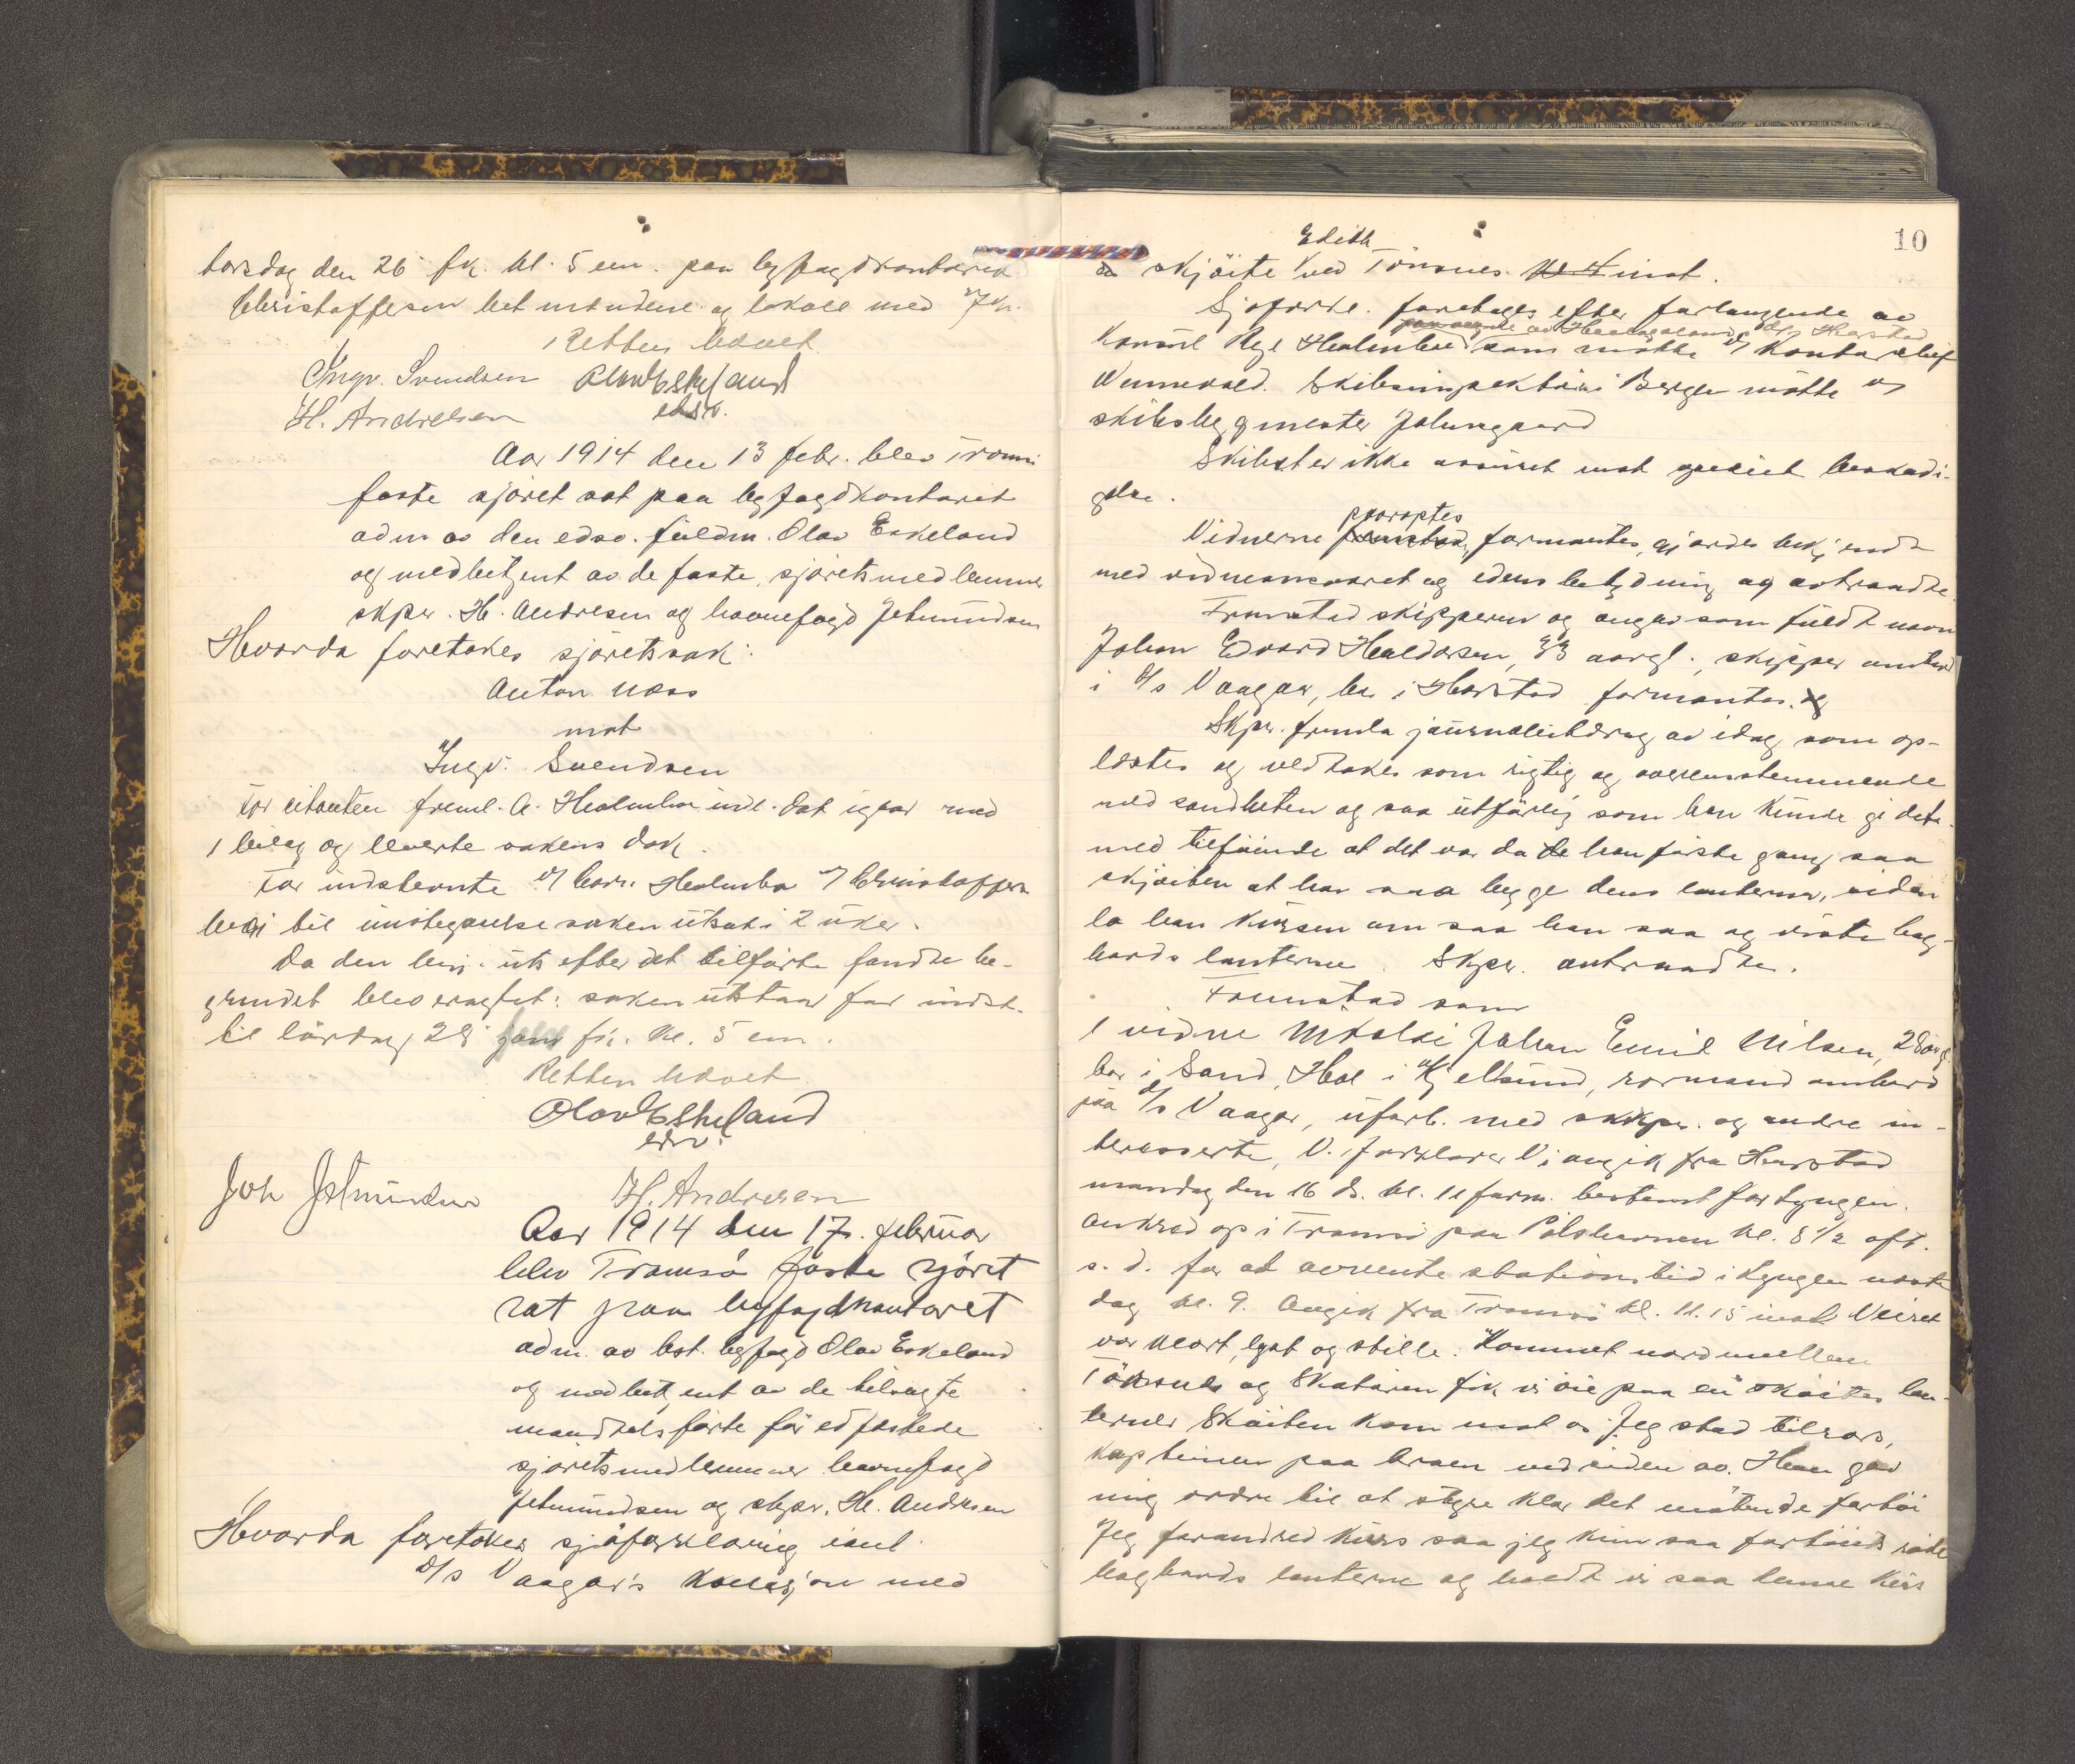 torsdag den 26 fk. kl. 5 em. paa byfogdkontoret
Christoffersen bet. med
Retten hævet
Ingv. Svendsen Olav Eskeland
H. Andresen edsv.
Aar 1914 den 13 febr. blev Tromsø
faste sjøret sat paa byfogdkontoret
adm av den edsv. fuldm. Olav Eskeland
og medbetjent av de faste sjøretsmedlemmer
skpr. H. Andresen og havnefogd Jetmundsen
Hvorda foretokes sjøretssak:
Anton Moss
mot
Ingv. Svendsen
For citanten freml. A. Holmboe indl. dat igaar med
1 bilag og leverte sakens dok.
For indstevnte
til imøtegaaelse saken utsat i 2 uker.
Da den beg. uts efter det tilførte fandtes be-
grundet blev eragtet: saken utstaar for indst.
til lördag 28 fk. kl. 5 em.
Retten hævet
Olav Eskeland
edsv.
Joh Jetmundsen H. Andresen
Aar 1914 den 17. februar
blev Tromsø faste sjöret
sat paa byfogdkontoret
adm. av bst. byfogd Olav Eskeland
og medbetjent av de tilsagte
mandtalsførte før edfæstede
sjøretsmedlemmer havnefogd
Jetmundsen og skpr. H. Andresen
Hvorda foretokes sjøforklaring ianl.
D/s Vaagar's kollisjon med
10
Edith
skjöite ved Tönsnes inat.
Sjoforkl. foretages efter forlangende av
Konsul Holmboe som mötte Kontorchef
Wennevold. Skibsinspektör Berge mötte
skibsbygmester Johnsgaard
Skibet er ikke assuret mot specict beskadi-
gelse.
paaroptes
Vidnerne formantes, gjordes bekjendt
med vidneansvaret og edens betydning og avtraadte.
Fremstod skipperen og angav som fuldt navn
Johan Edvard Haldorsen, 33 aargl., skipper ombord
i D/s Vaagar, bor i Harstad formantes.
Skpr. fremla journalutdrag av idag som op-
læstes og vedtokes som rigtig og overensstemmende
med sandheten og saa utførlig som han kunde gi dette.
med tilføiende at det var da han første gang saa
skjøiten at han saa begge dens lanterner, siden
la han kursen om saa han saa og röde bag-
bords lanterne. Skpr. avtraadte.
Fremstod som
1 vidne Nikolai Johan Emil Nilsen, 28 aar gl.
bor i Sand, Hol i Kjelsund, rormand ombord
paa D/s Vaagar, uforb. med skpr. og andre in-
teresserte, V. forklarer Vi avgik fra Harstad
mandag den 16 ds. kl. 11 form. bestemt for Lyngen.
Ankred op i Tromsø paa Polshavnen kl. 8 1/2 aft.
s. d. for at avvente stationstid i Lyngen næste
dag kl. 9. Avgik fra Tromsø kl. 11.15 inat Veiret
var klart, lyst og stille. Kommet nord mellem
Tönsnes og Skataren fik vi öie paa en skøites lan-
terner Skøiten kom mot os. Jeg stod tilrors,
kapteinen paa broen ved siden av. Han gav
mig ordre til at styre klar det møtende fartöi
Jeg forandred kurs saa jeg kun saa fartöiets röde
bagbords lanterne og holdt vi saa denne kurs